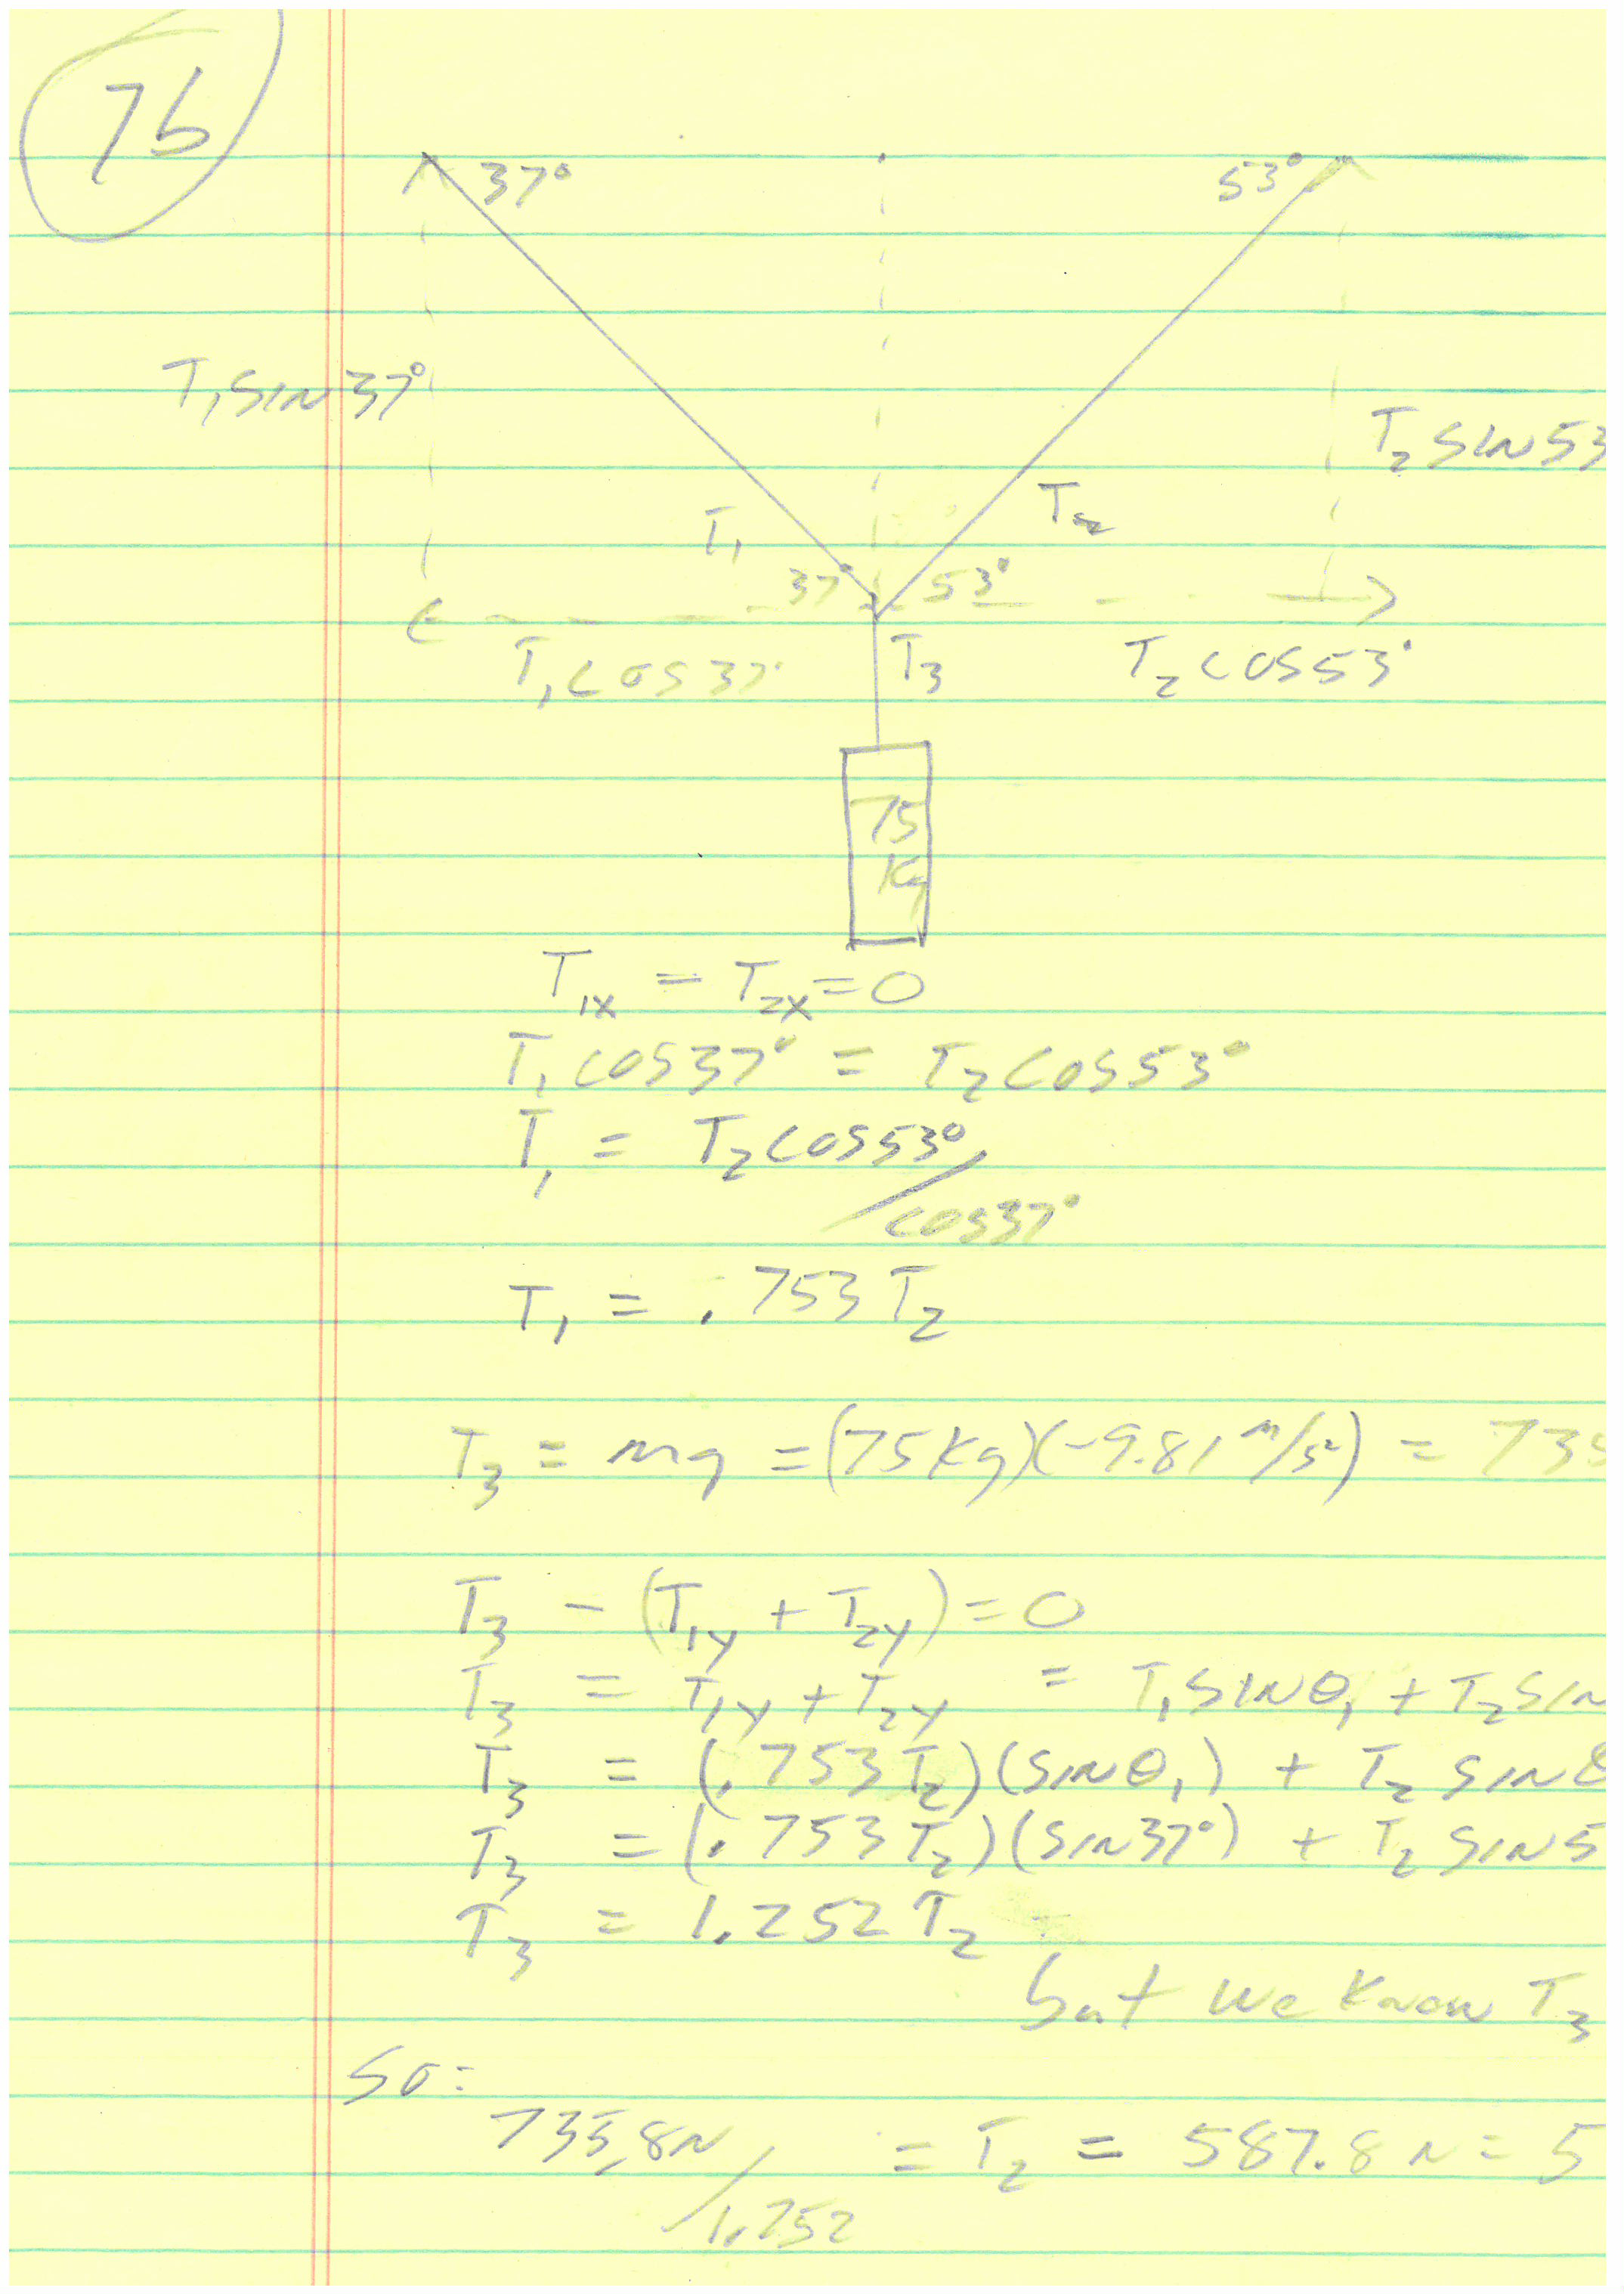 76
37° 53°
T₁ SIN 37°
T₂ SIN 53
T₁ T₂
37° 53°
T₁ COS 37° T₃ T₂ COS 53°
75
Kg
T₁ₓ = T₂ₓ = 0
T₁ COS 37° = T₂ COS 53°
T₁ = T₂ COS 53° /
COS 37°
T₁ = .753 T₂
T₃ = mg = (75 Kg)(-9.81 m/s²) = 735
T₃ - (T₁y + T₂y) = 0
T₃ = T₁y + T₂y = T₁ SIN θ₁ + T₂ SIN
T₃ = (.753 T₂)(SIN θ₁) + T₂ SIN θ
T₃ = (.753 T₂)(SIN 37°) + T₂ SIN 5
T₃ = 1.252 T₂
but we know T₃
So:
735.8 N / = T₂ = 587.8 N = 5
1.252